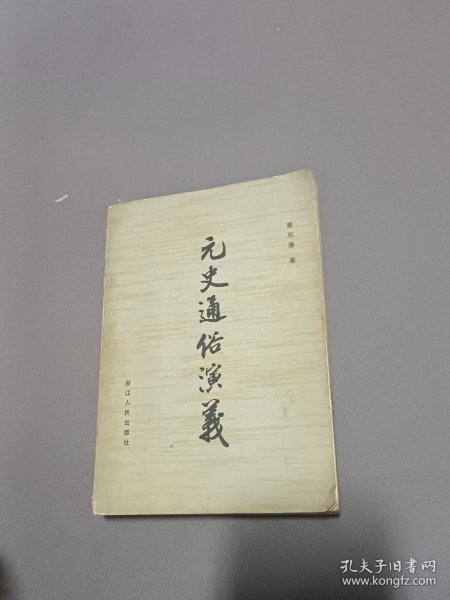 蔡东藩 著
元史通俗演義
浙江人民出版社
孔夫子旧书网
www.kongfz.com